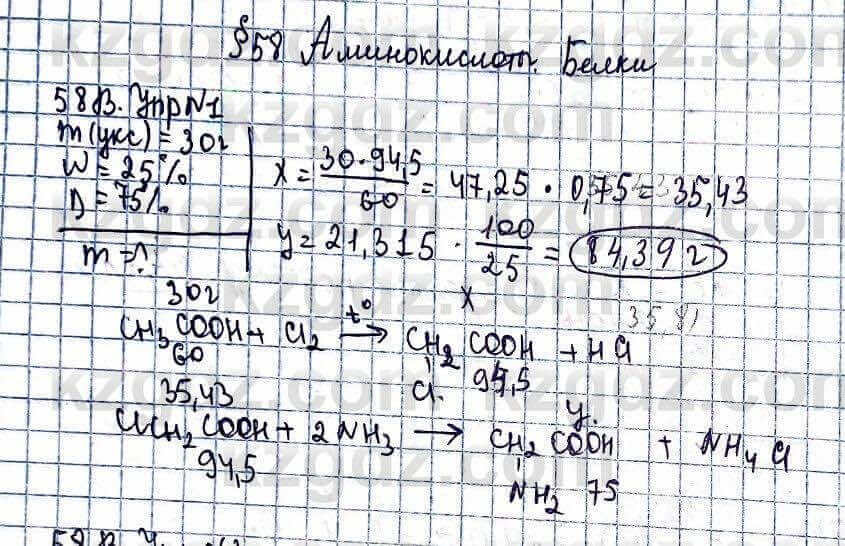 §58 Аминокислоты. Белки
58В. Упр №1
m(укс) = 30г
W = 25%
η = 75%
m = ?
x = 30 · 94,5 / 60 = 47,25 · 0,75 = 35,43
y = 21,315 · 100 / 25 = 84,39 г
30г x
CH3COOH + Cl2 t° → CH2COOH + HCl
60 Cl 94,5
35,43 y.
ClCH2COOH + 2NH3 → CH2COOH + NH4Cl
94,5 NH2 75